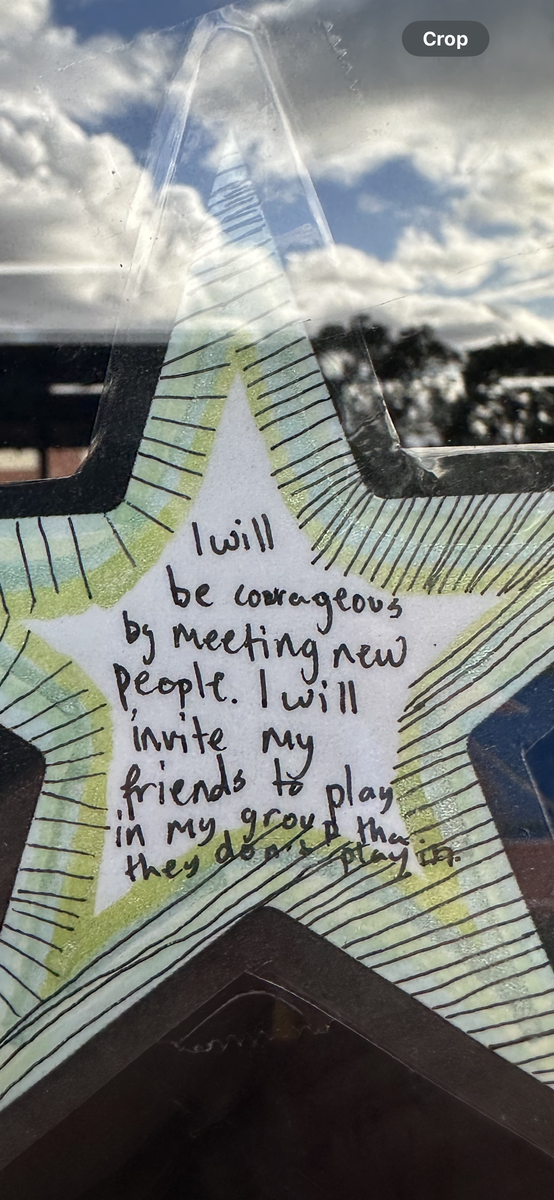 Crop
I will
be courageous
by meeting new
people. I will
invite my
friends to play
in my group tha
they don't play in.